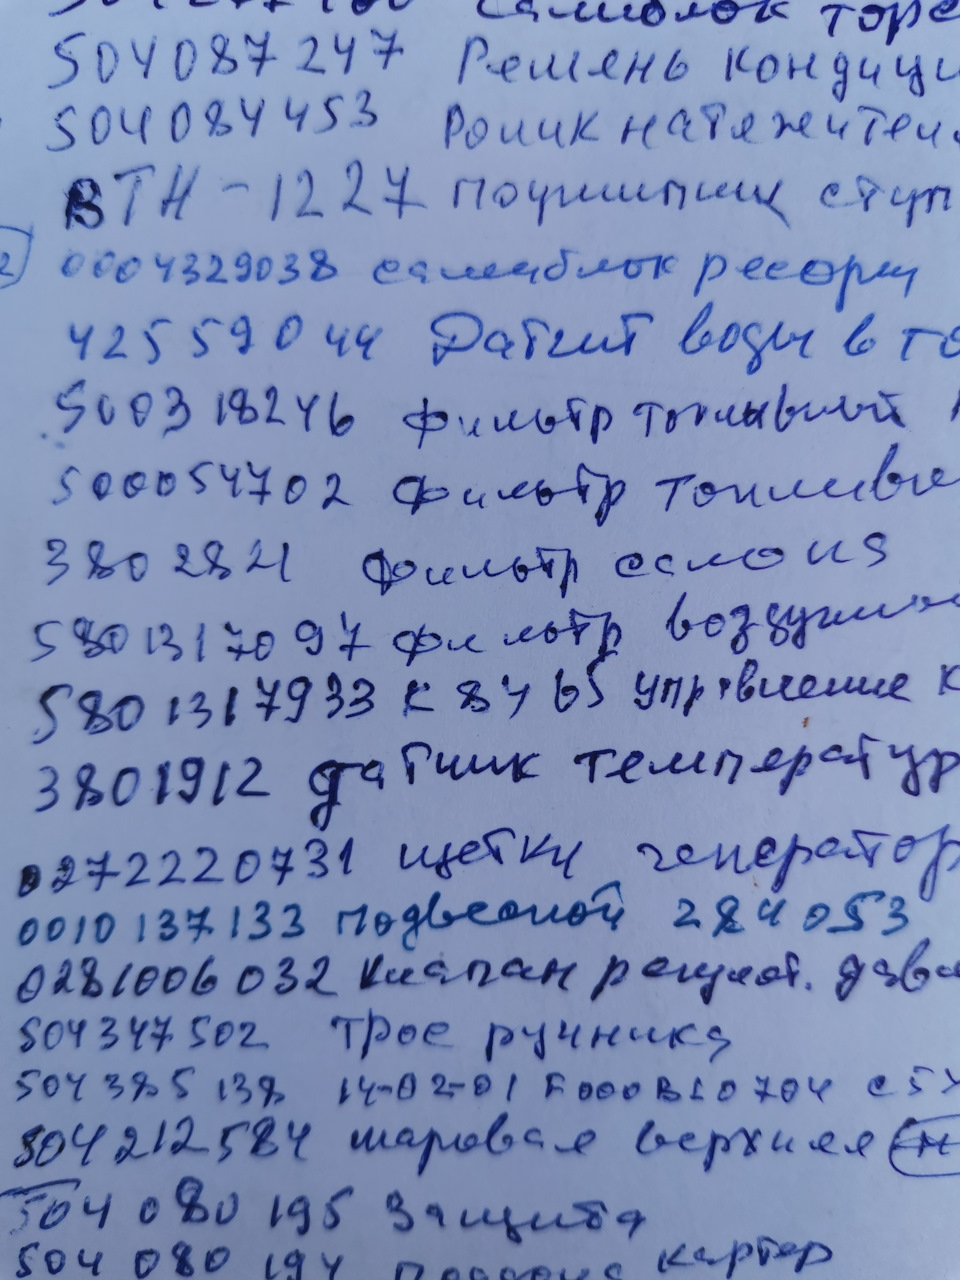 сайлблок
504087247 Ремень кондици
504084453 Ролик натяжител
BTH-1227 подшипник ступ
0004329038 сайлблок рессоры
42559044 Датчик воды в то
500318246 фильтр топливный
500054702 фильтр топливн
3802821 фильтр салона
5801317097 фильтр воздушно
5801317933 управление к
3801912 датчик температур
0272220731 щетки генератор
0010137133 подвесной 284053
0281006032 клапан регулят. давл
504347502 Трос ручника
504385138 14-02-01 F000BL0704
504212584 шаровая верхняя н
504 080 195 Защита
504 080 194 поддона картер